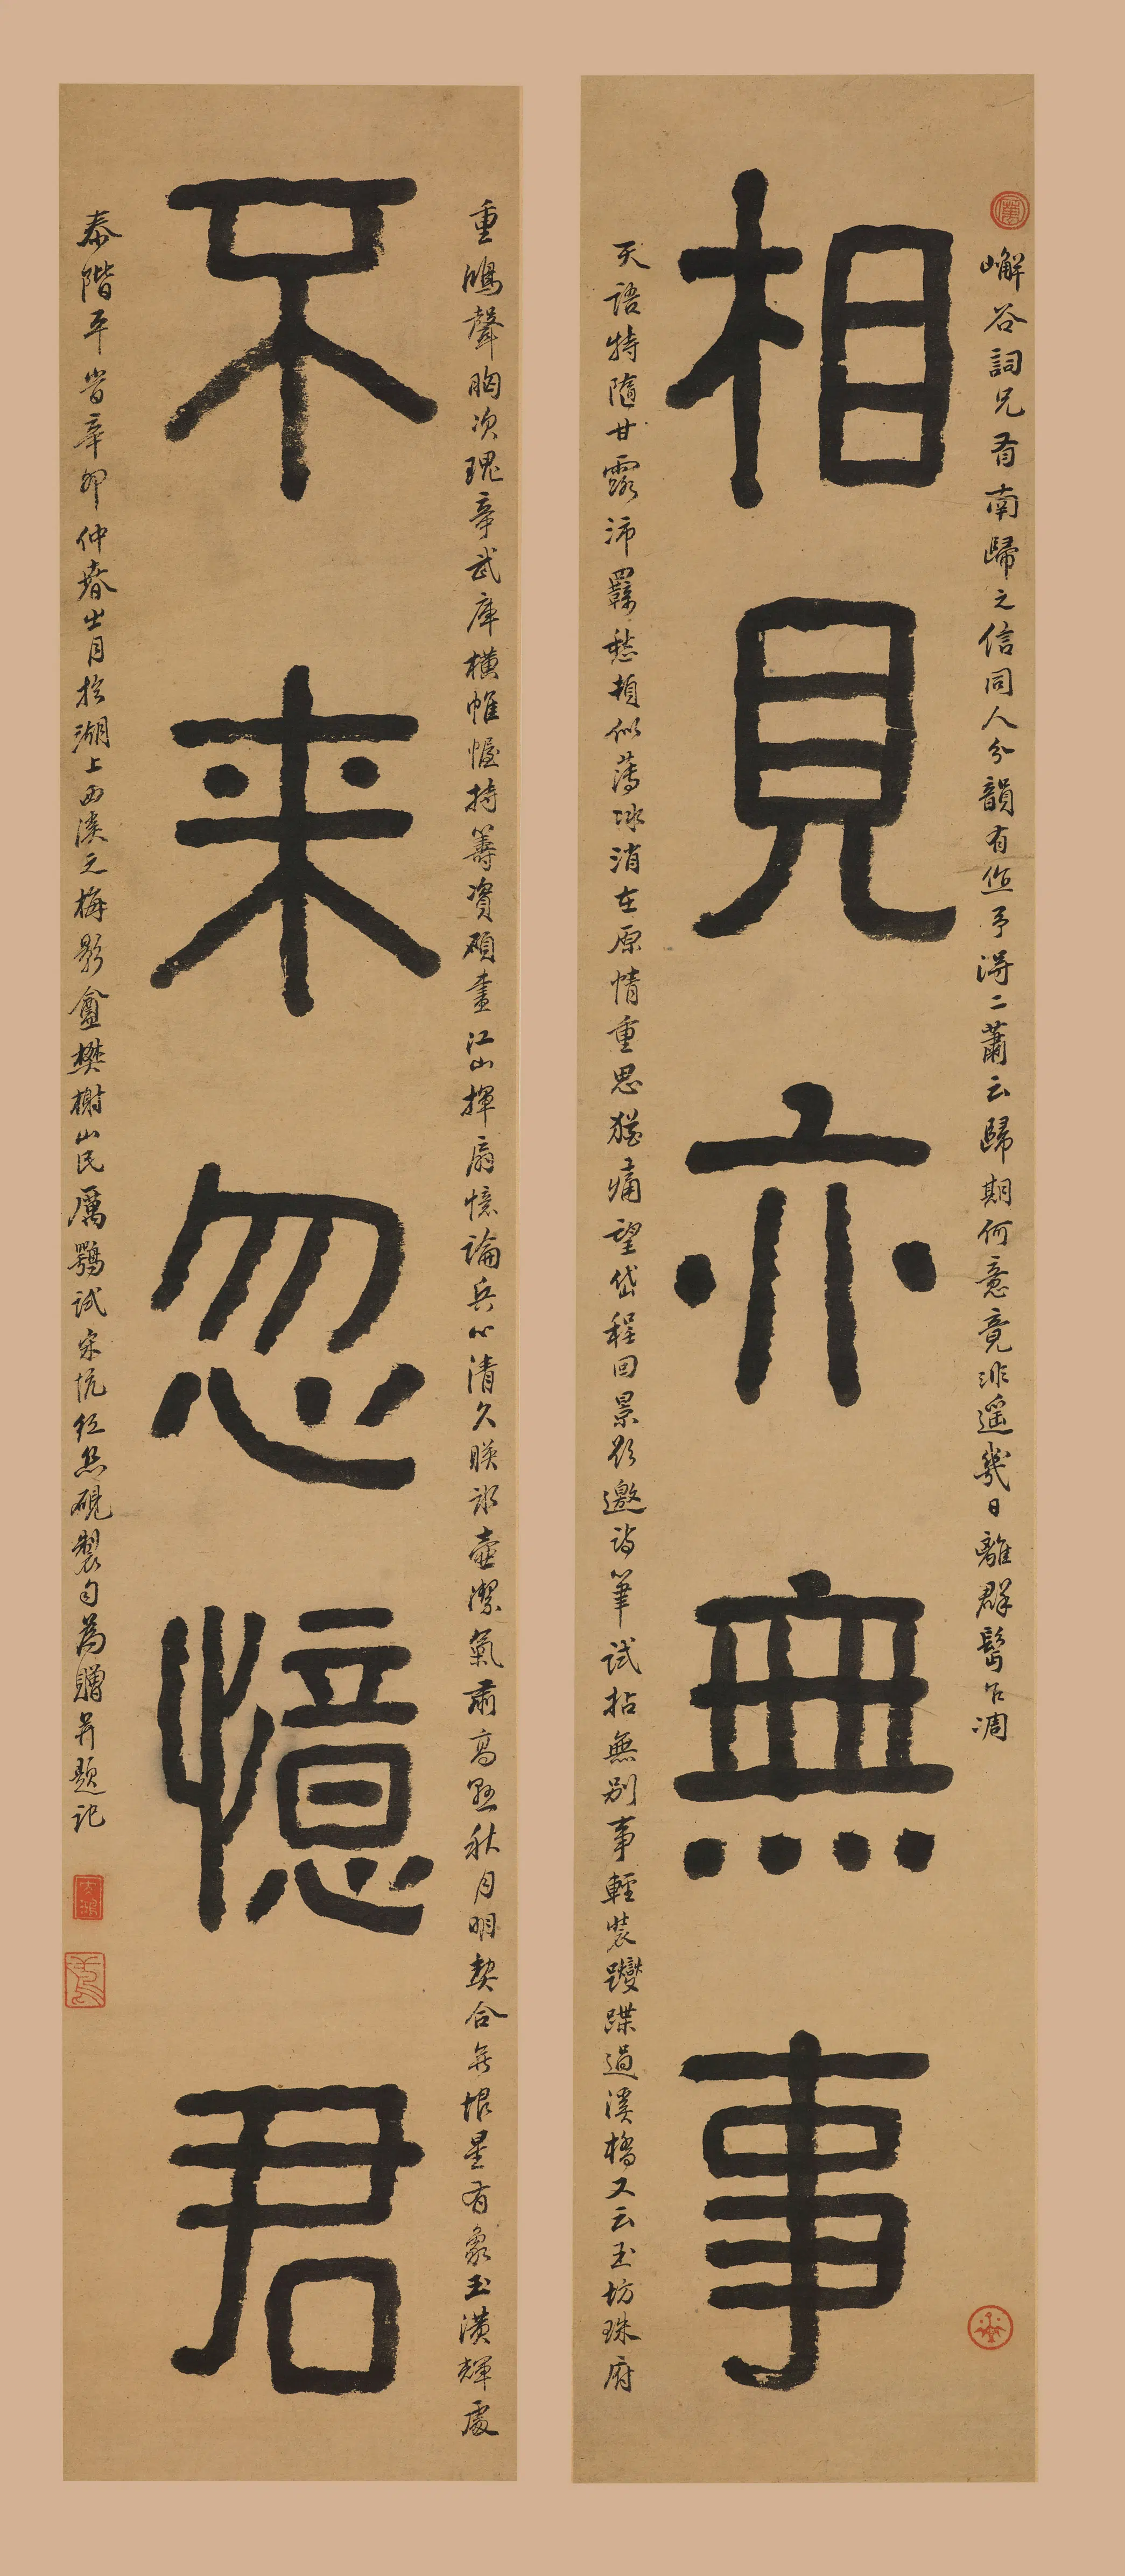 嶰谷詞兄有南歸之信同人分韻有作予得二蕭云歸期何意竟非遥幾日離群髩欲凋
相見亦無事
天語特隨甘露沛羈愁頓似薄冰消在原情重思猶痛望岱程回景欲邀詩筆試拈無別事輕裝躞蹀過溪橋又云玉坊珠府
重鴻聲胸次瑰章武庫橫帷幄持籌資碩畫江山揮扇憶論兵心清久映冰壺潔氣肅高懸秋月明契合無垠星有象玉潢輝處
不来忽憶君
泰階平當辛卯仲春出月於湖上西溪之梅影盦樊榭山民厲鶚試宋坑紅絲硯製句為贈并題記
太鴻